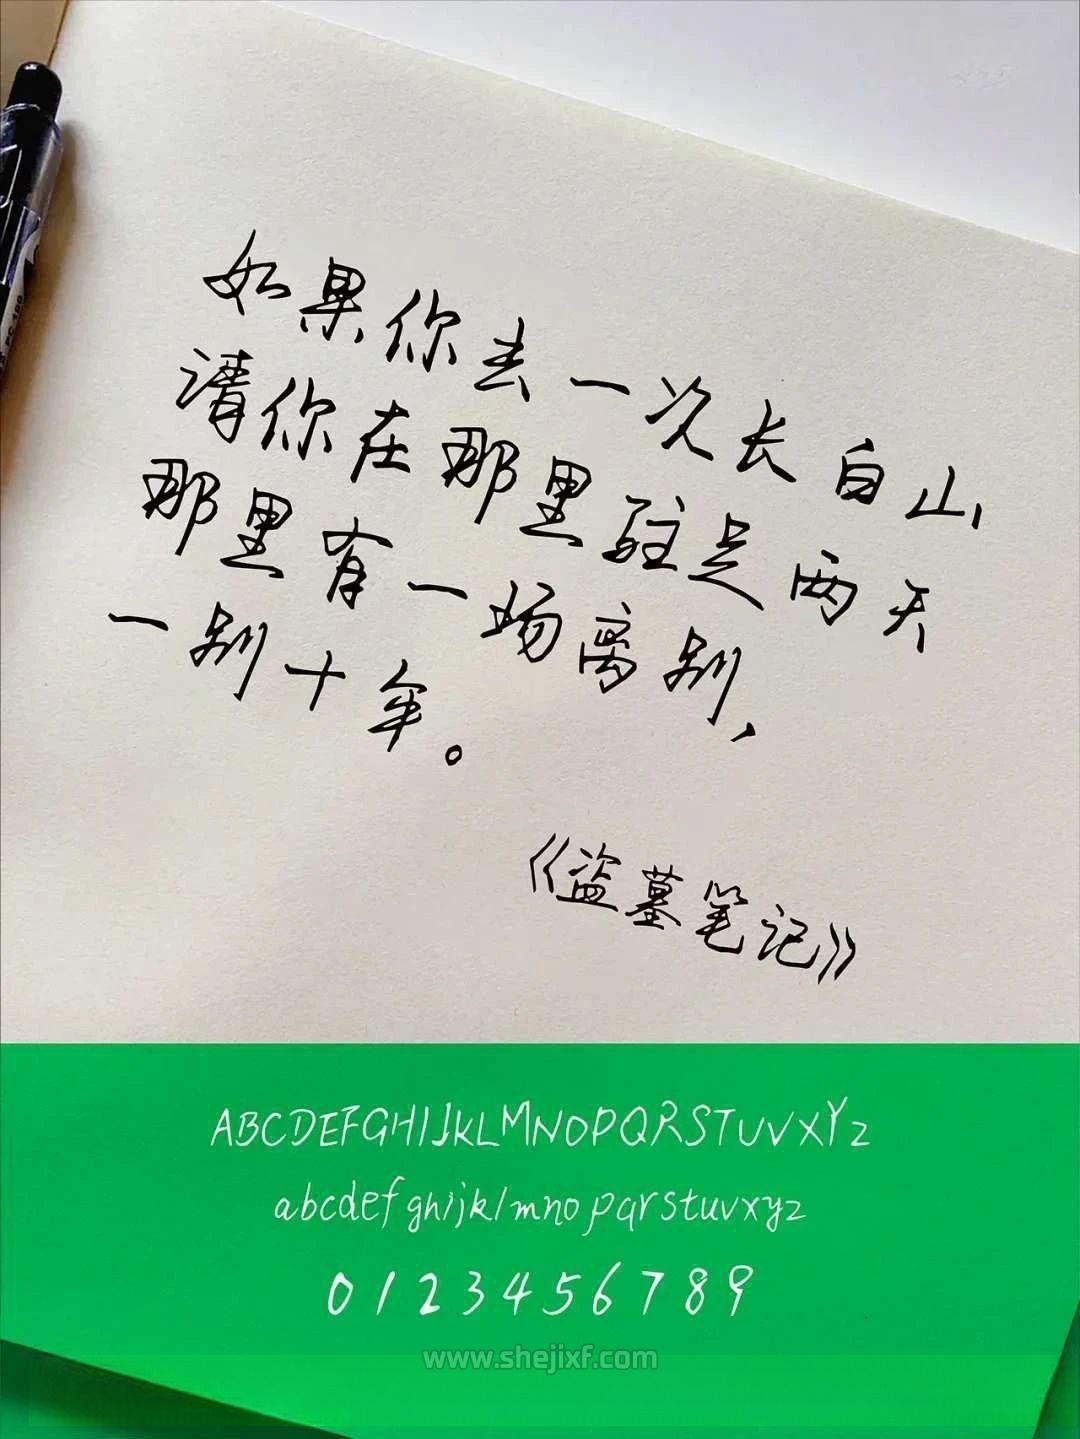 如果你去一次长白山
请你在那里驻足两天
那里有一场离别,
一别十年。
《盗墓笔记》
ABCDEFGHIJKLMNOPQRSTUVXYZ
abcdefghijklmnopqrstuvxyz
0123456789
www.shejixf.com